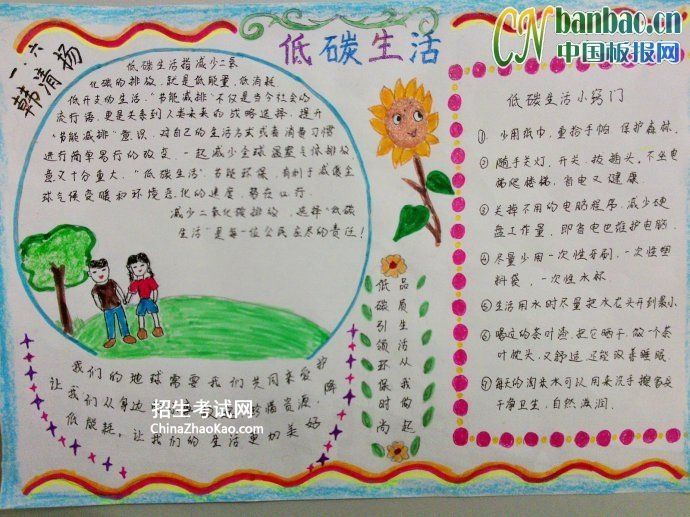 CNbanbao.cn
中国板报网
低碳生活
一.六
韩清扬
低碳生活指减少二氧
化碳的排放,就是低能量、低消耗
低开支的生活。"节能减排"不仅是当今社会的
流行语,更是关系到人类未来的战略选择。提升
"节能减排"意识,对自己的生活方式或者消费习惯
进行简单易行的改变,一起减少全球温室气体排放
意义十分重大。"低碳生活"节能环保,有利于减缓全
球气候变暖和环境恶化的速度,势在必行。
减少二氧化碳排放,选择"低碳
生活"是每一位公民应尽的责任!
我们的地球需要我们共同来爱护
让我们从身边
珍惜资源、降
低能耗,让我们的生活更加美好
招生考试网
ChinaZhaoKao.com
低碳引领环保时尚
品质生活从我做起
低碳生活小窍门
① 少用纸巾,重拾手帕,保护森林
② 随手关灯、开关、拔插头,不坐电
梯爬楼梯,省电又健康.
③ 关掉不用的电脑程序,减少硬
盘工作量,即省电也维护电脑.
④ 尽量少用一次性牙刷、一次性塑
料袋、一次性水杯.
⑤ 生活用水时尽量把水龙头开到最小.
⑥ 喝过的茶叶渣,把它晒干,做一个茶
叶枕头,又舒适,还能改善睡眠.
⑦ 每天的淘米水可以用来洗手擦家具
干净卫生,自然滋润.